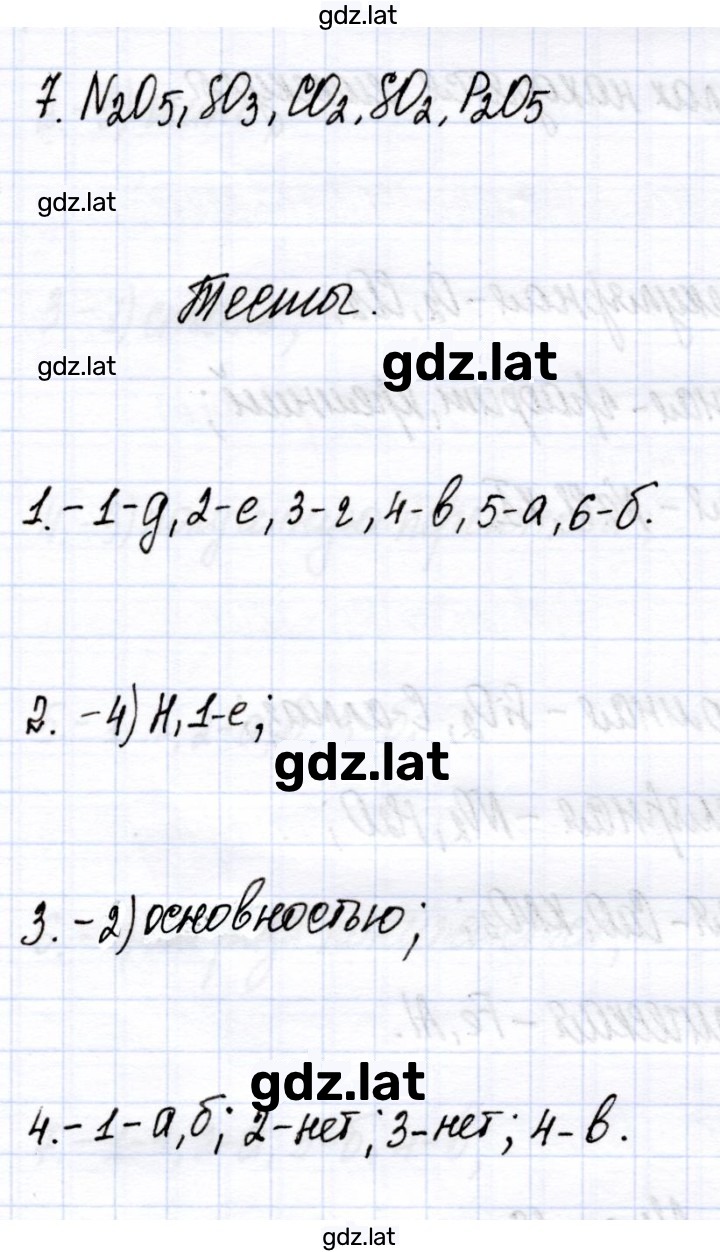 gdz.lat
7. N2O5, SO3, CO2, SO2, P2O5
gdz.lat
Тесты.
gdz.lat
gdz.lat
1. - 1-д, 2-е, 3-г, 4-в, 5-а, 6-б.
2. - 4) Н, 1-е;
gdz.lat
3. - 2) основностью;
gdz.lat
4. - 1-а, б; 2-нет; 3-нет; 4-в.
gdz.lat